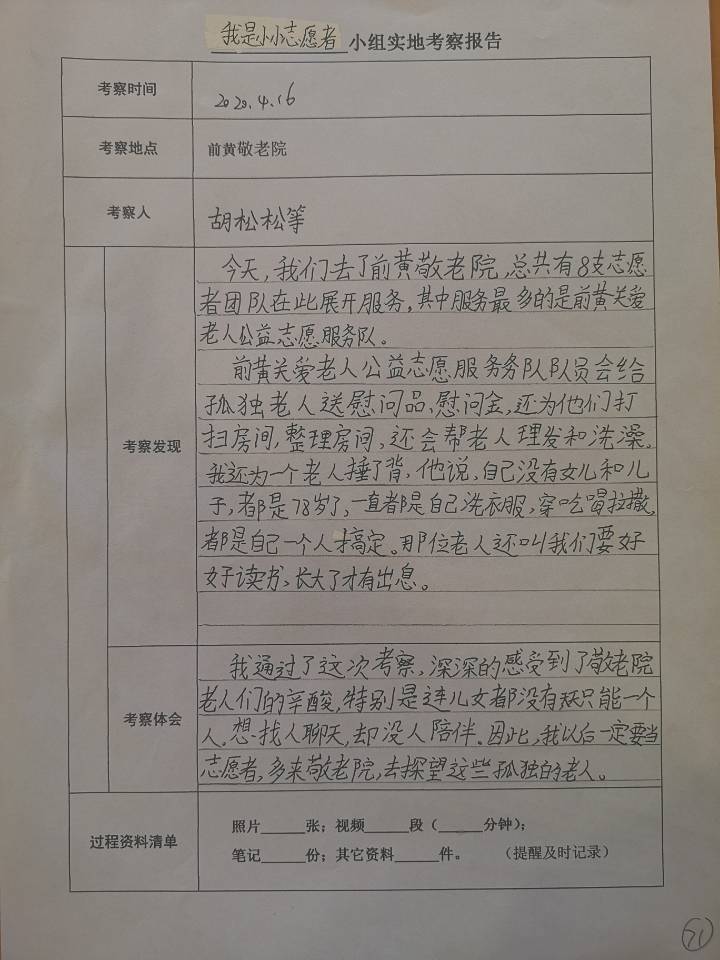 我是小小志愿者 小组实地考察报告
考察时间
2020.4.16
考察地点
前黄敬老院
考察人
胡松松等
考察发现
今天,我们去了前黄敬老院,总共有8支志愿
者团队在此展开服务,其中服务最多的是前黄关爱
老人公益志愿服务队。
前黄关爱老人公益志愿服务务队队员会给
孤独老人送慰问品、慰问金,还为他们打
扫房间,整理房间、还会帮老人理发和洗澡。
我还为一个老人捶了背,他说,自己没有女儿和儿
子,都是78岁了,一直都是自己洗衣服,穿吃喝拉撒,
都是自己一个人才搞定。那位老人还叫我们要好
好读书、长大了才有出息。
考察体会
我通过了这次考察,深深的感受到了敬老院
老人们的辛酸,特别是连儿女都没有 只能一个
人。想找人聊天,却没人陪伴。因此,我以后一定要当
志愿者,多来敬老院,去探望这些孤独的老人。
过程资料清单
照片_____张;视频_____段(_____分钟);
笔记_____份;其它资料_____件。 (提醒及时记录)
71